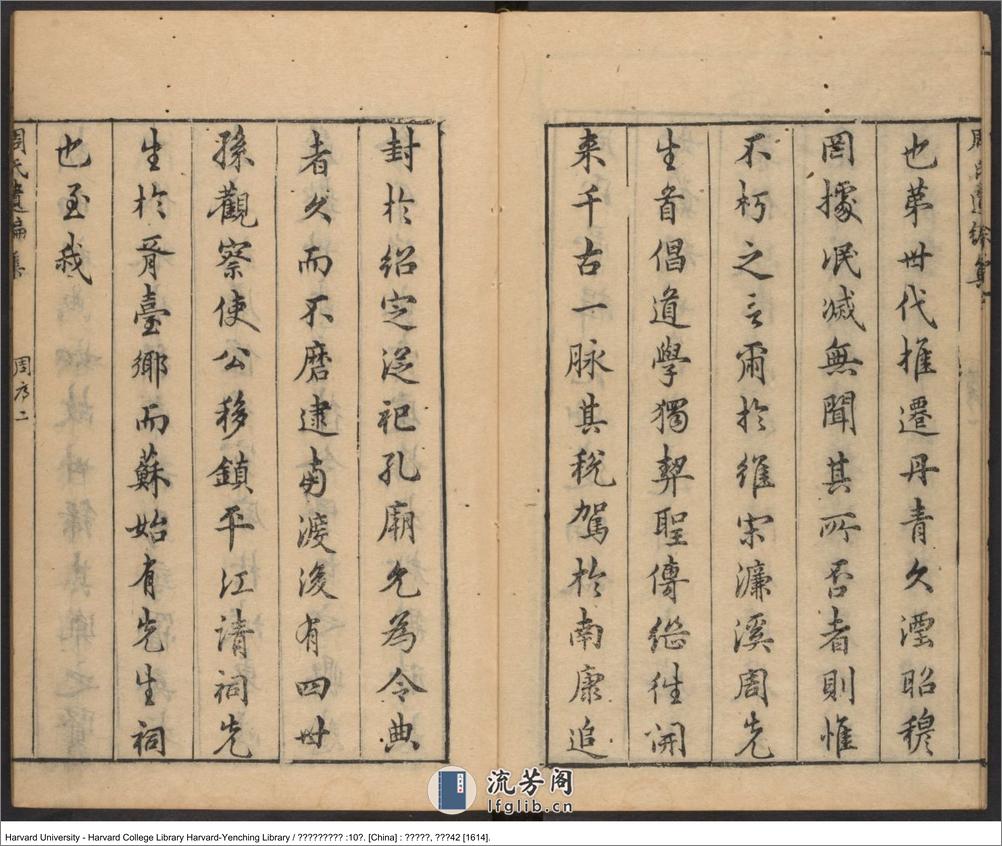 也第世代推遷丹青久湮昭穆
罔據泯滅無聞其所否者則惟
不朽之言爾於維宋濂溪周先
生首倡道學獨契聖傳繼徃開
来千古一脉其稅駕於南康追
封於紹定從祀孔廟允為令典
者久而不磨逮南渡後有四世
孫觀察使公移鎮平江請祠先
生於胥臺鄉而蘇始有先生祠
也至我
周氏遺編集
周序二
流芳阁
lfglib.cn
Harvard University - Harvard College Library Harvard-Yenching Library / ????????? :10?. [China] : ?????, ???42 [1614].